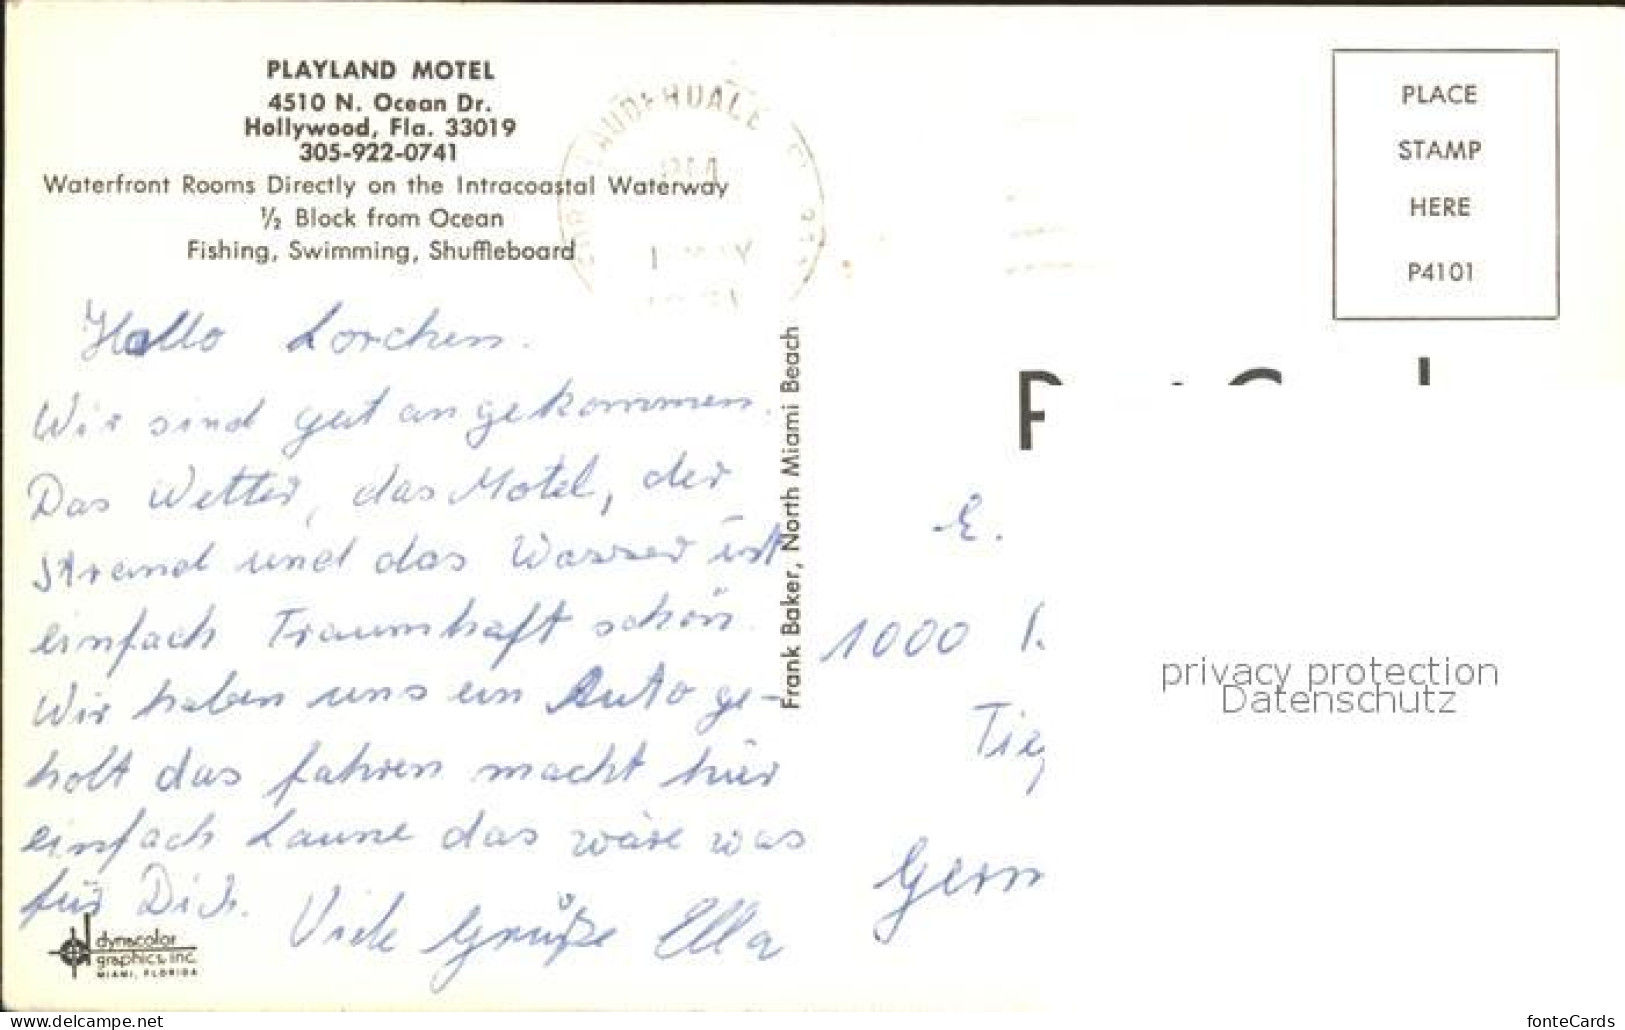 PLAYLAND MOTEL
4510 N. Ocean Dr.
Hollywood, Fla. 33019
305-922-0741
Waterfront Rooms Directly on the Intracoastal Waterway
½ Block from Ocean
Fishing, Swimming, Shuffleboard
LAUDERDALE
Hallo Lorchen.
Wir sind gut angekommen.
Das Wetter, das Motel, der
Strand und das Wasser ist
einfach Traumhaft schön.
Wir haben uns ein Auto ge-
holt das fahren macht hier
einfach Laune das wäre was
für Dich. Viele Grüße Ella
dynacolor
graphics, inc.
MIAMI, FLORIDA
Frank Baker, North Miami Beach
PLACE
STAMP
HERE
P4101
E.
1000
Germ
privacy protection
Datenschutz
www.delcampe.net
fonteCards